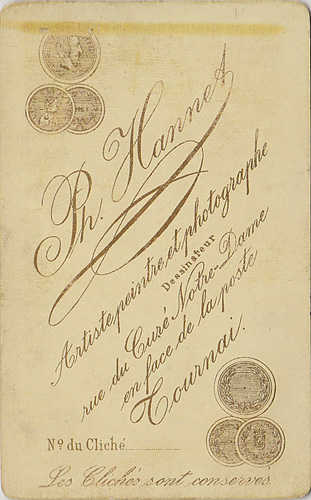 Ph. Hannet
Artiste peintre et photographe
Dessinateur
rue du Curé Notre-Dame
en face de la poste
Tournai.
Nº du Cliché
Les Clichés sont conservés